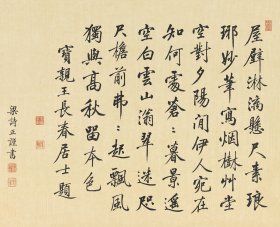 屋壁淋漓懸尺素琅
琊妙筆寫烟樹艸堂
空對夕陽閒伊人宛在
知何處蒼=暮景遥
空白雲山滃翠迷咫
尺檐前弗=起飄風
獨與高秋留本色
寶親王長春居士題
梁詩正謹書